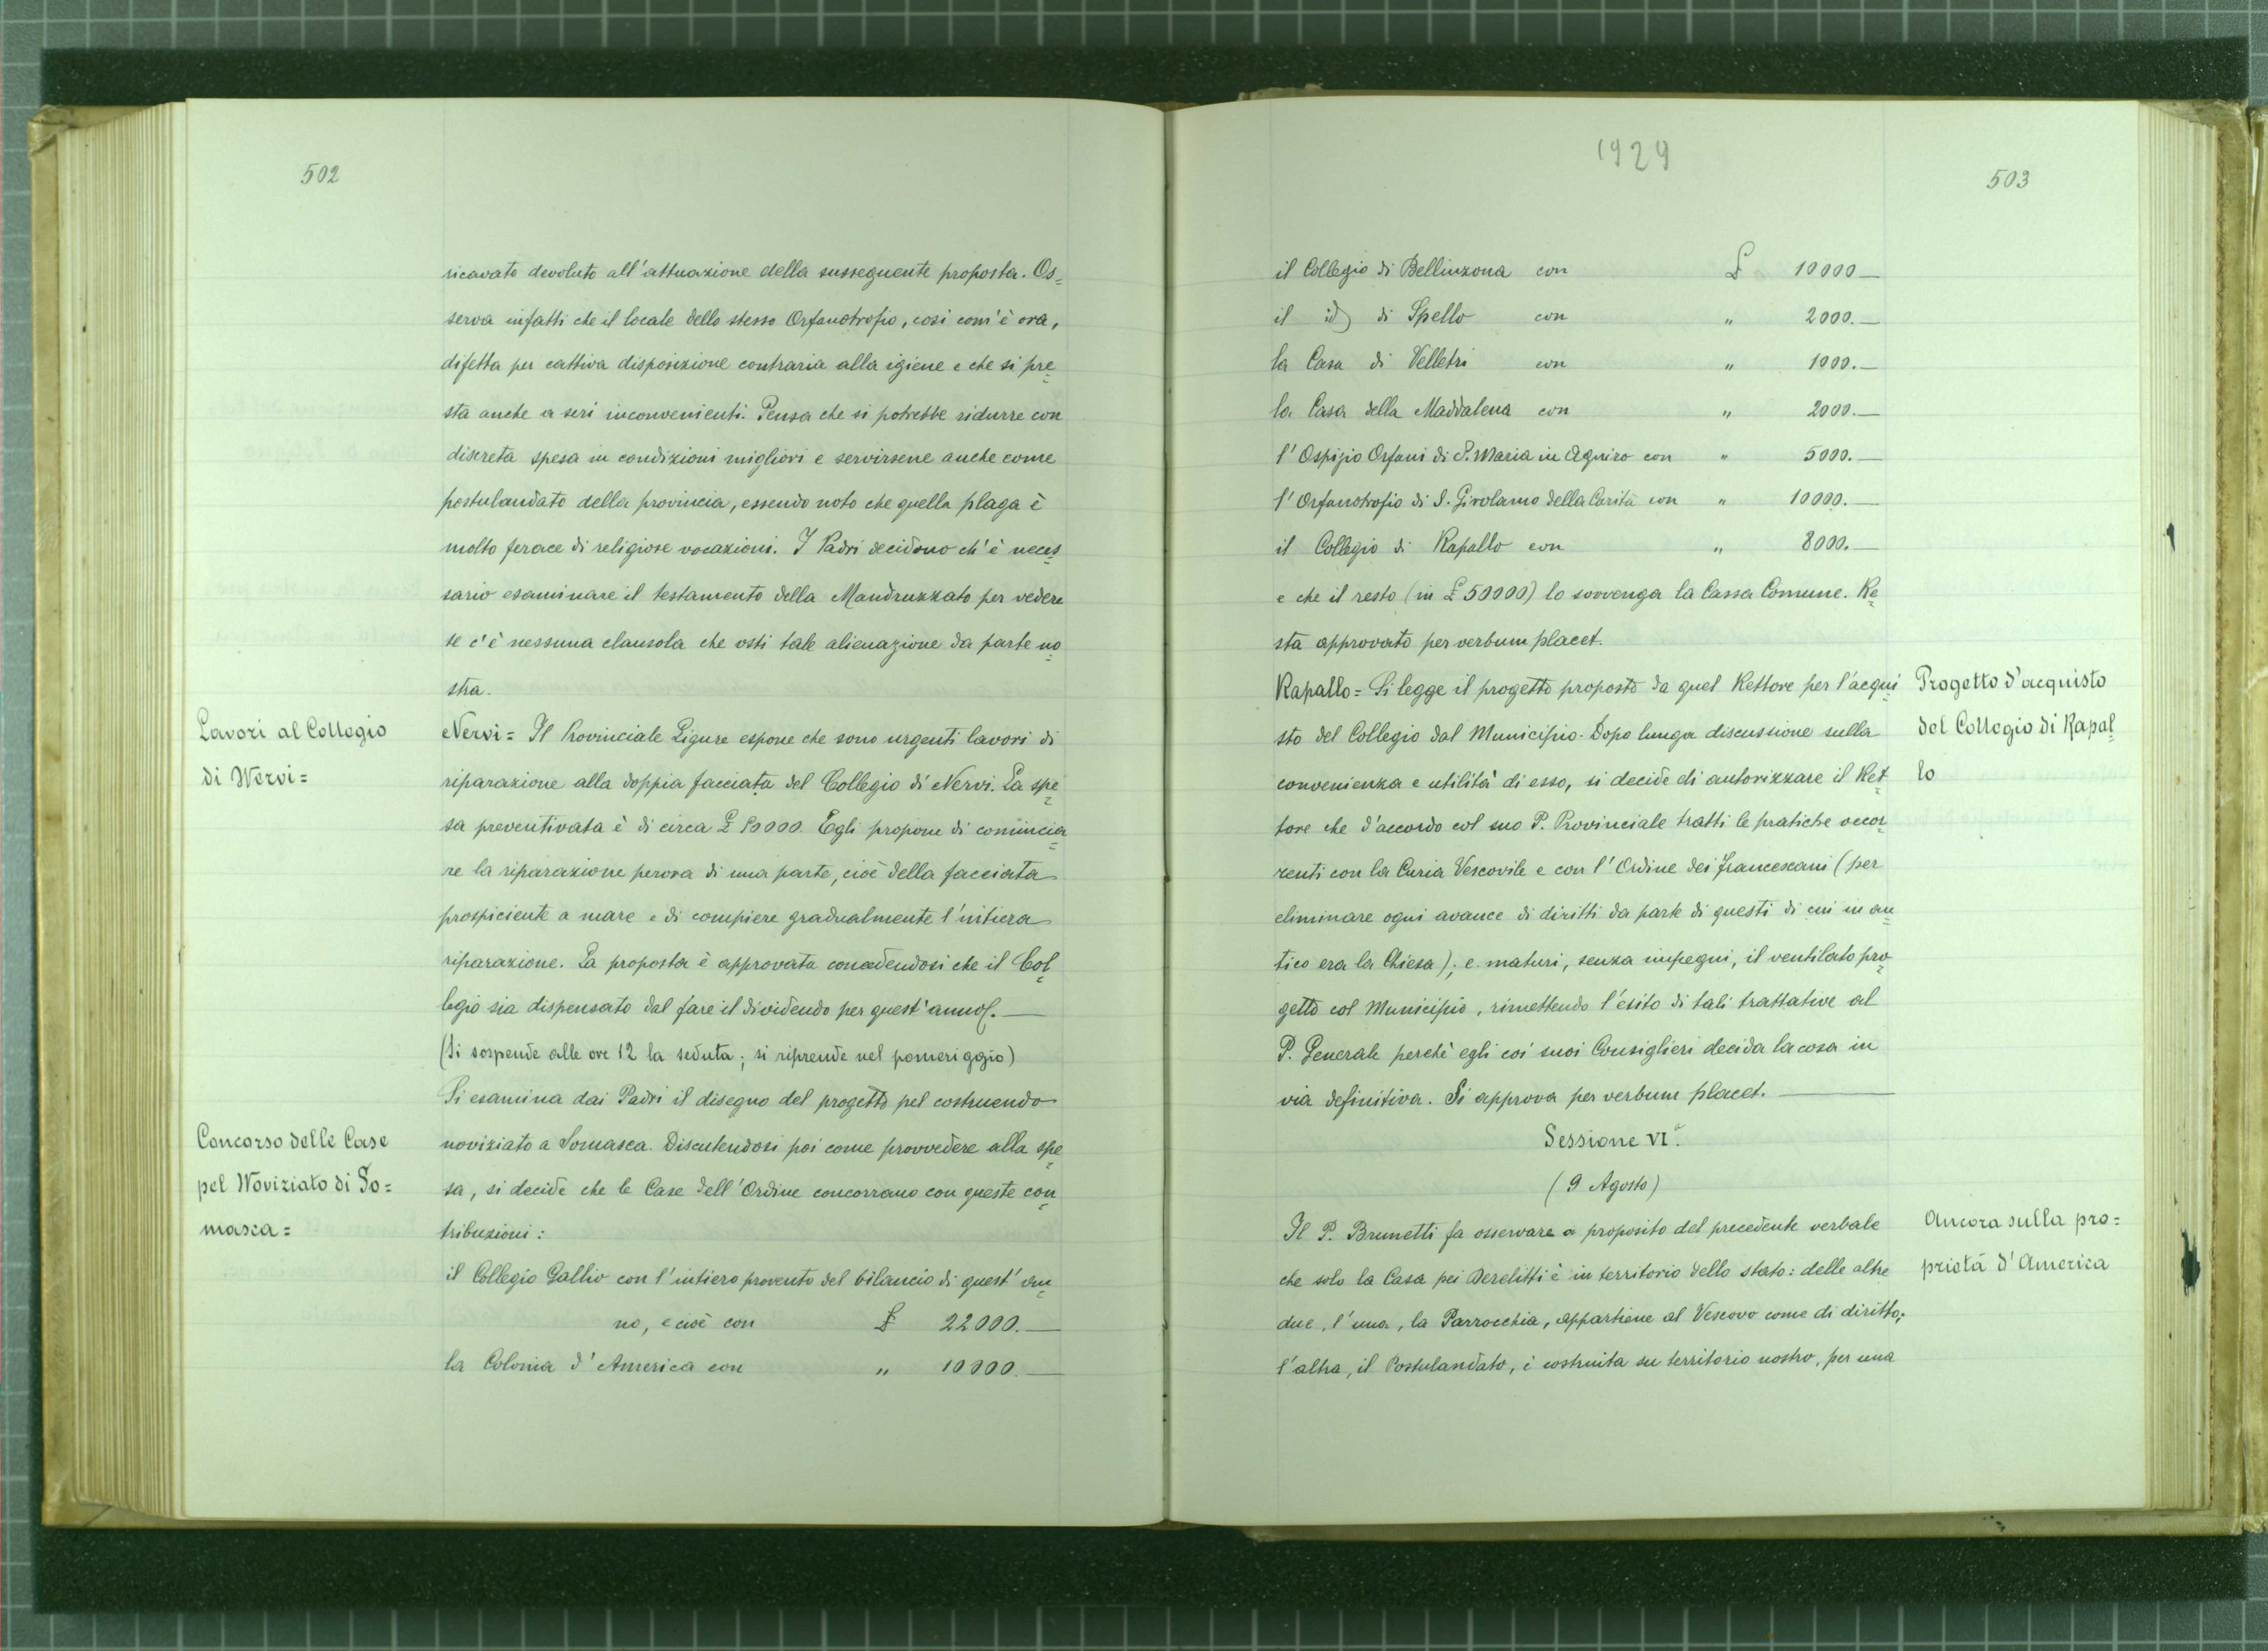 502
ricavato devoluto all'attuazione della susseguente proposta. Os=
serva infatti che il locale dello stesso Orfanotrofio, così com'è ora,
difetta per cattiva disposizione contraria alla igiene e che si pre=
sta anche a seri inconvenienti. Pensa che si potrebbe ridurre con
discreta spesa in condizioni migliori e servirsene anche come
postulandato della provincia, essendo noto che quella plaga è
molto ferace di religiose vocazioni. I Padri decidono ch'è neces=
sario esaminare il testamento della Mandruzzato per vedere
se c'è nessuna clausola che osti tale alienazione da parte no=
stra.
Lavori al Collegio
di Nervi=
Nervi= Il Provinciale Ligure espone che sono urgenti lavori di
riparazione alla doppia facciata del Collegio di Nervi. La spe=
sa preventivata è di circa £ Egli propone di comincia=
re la riparazione perora di una parte, cioè della facciata
prospiciente a mare e di compiere gradualmente l'intiera
riparazione. La proposta è approvata concedendosi che il Col=
legio sia dispensato dal fare il dividendo per quest'anno.—
(Si sospende alle ore 12 la seduta; si riprende nel pomeriggio)
Si esamina dai Padri il disegno del progetto pel costruendo
Concorso delle Case
pel Noviziato di So=
masca=
noviziato a Somasca. Discutendosi poi come provvedere alla spe=
sa, si decide che le Case dell'Ordine concorrano con queste con=
tribuzioni:
il Collegio Gallio con l'intiero provento del bilancio di quest'an=
no, e cioè con £ 22000.—
la Colonia d'America con " 10000.—
1929
503
il Collegio di Bellinzona con £ 10000—
il id) di Spello con " 2000.—
la Casa di Velletri con " 1000.—
la Casa della Maddalena con " 2000.—
l'Ospizio Orfani di S. Maria in Aquiro con " 5000.—
l'Orfanotrofio di S. Girolamo della Carità con " 10000.—
il Collegio di Rapallo con " 8000.—
e che il resto (in £ 50000) lo sovvenga la Cassa Comune. Re=
sta approvato per verbum placet.
Rapallo= Si legge il progetto proposto da quel Rettore per l'acqui
sto del Collegio dal Municipio. Dopo lunga discussione sulla
convenienza e utilità di esso, si decide di autorizzare il Ret=
tore che d'accordo col suo P. Provinciale tratti le pratiche occor=
renti con la Curia Vescovile e con l'Ordine dei Francescani (per
eliminare ogni avance di diritti da parte di questi di cui in an=
tico era la Chiesa); e maturi, senza impegni, il ventilato pro=
getto col Municipio, rimettendo l'esito di tali trattative al
P. Generale perchè egli coi suoi Consiglieri decida la cosa in
via definitiva. Si approva per verbum placet.—
Progetto d'acquisto
del Collegio di Rapal=
lo
Sessione VIª.
(9 Agosto)
Il P. Brunetti fa osservare a proposito del precedente verbale
che solo la Casa pei Derelitti è in territorio dello stato: delle altre
due, l'una, la Parrocchia, appartiene al Vescovo come di diritto;
l'altra, il Postulandato, è costruita su territorio nostro, per una
Ancora sulla pro=
prietà d'America